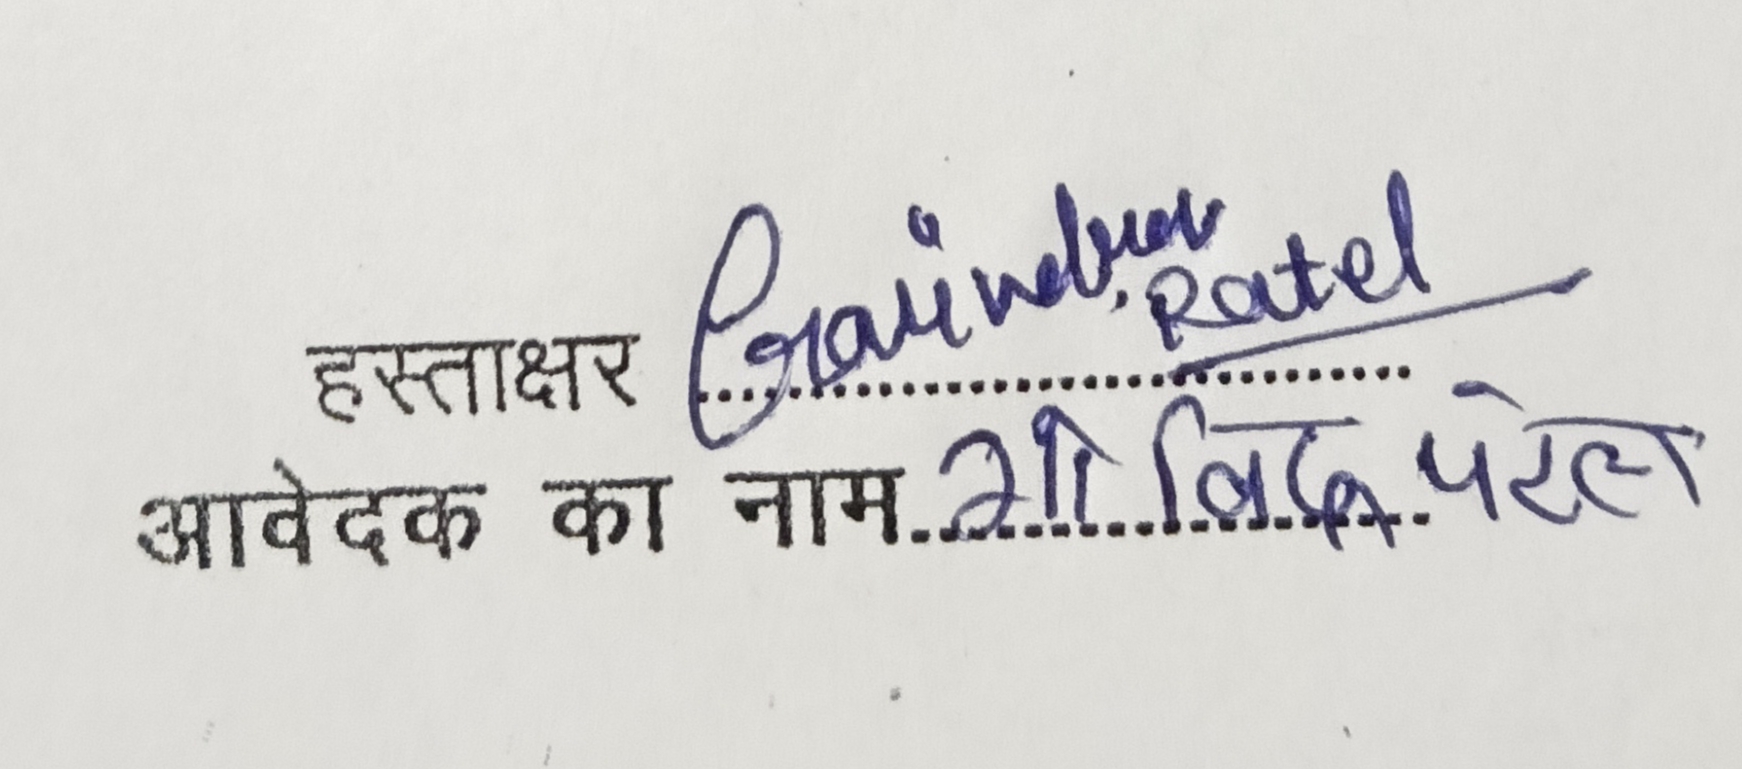 हस्ताक्षर Govindra Patel
आवेदक का नाम गोविंद पटेल